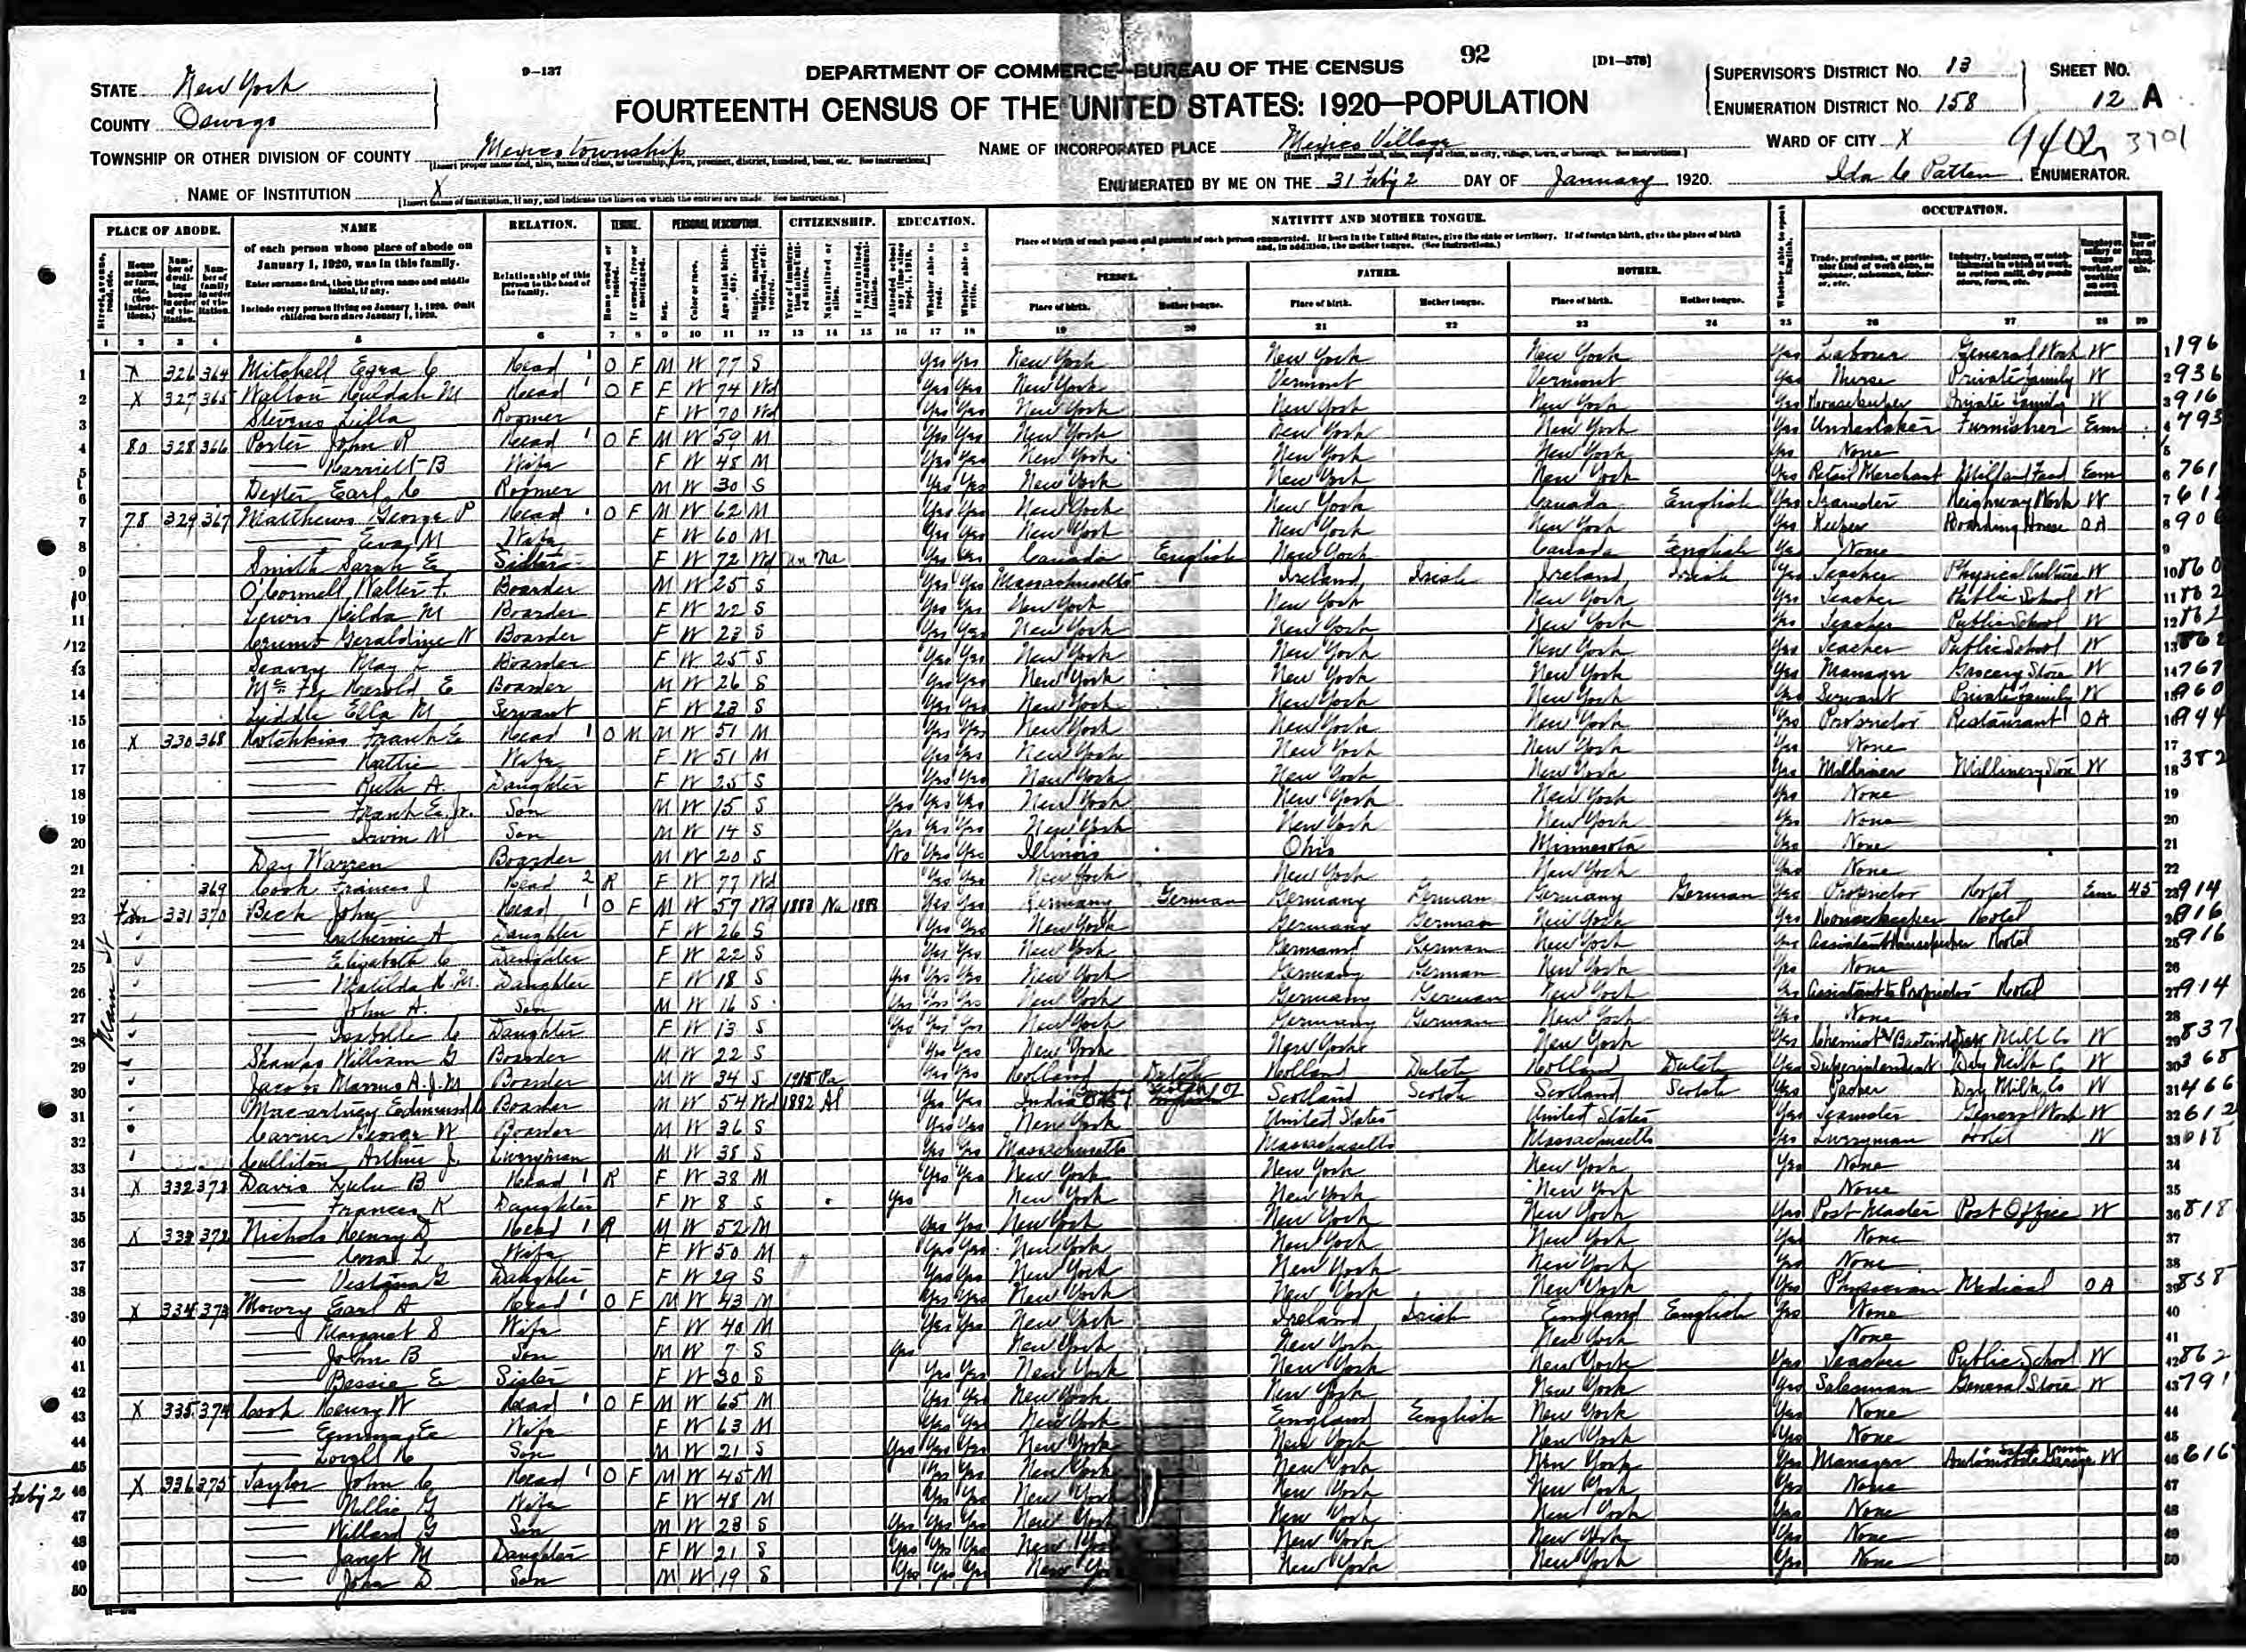 92
9-137
DEPARTMENT OF COMMERCE—BUREAU OF THE CENSUS
[D1-578]
FOURTEENTH CENSUS OF THE UNITED STATES: 1920—POPULATION
STATE New York
COUNTY Oswego
SUPERVISOR'S DISTRICT NO. 13
ENUMERATION DISTRICT NO. 158
SHEET NO. 12 A
TOWNSHIP OR OTHER DIVISION OF COUNTY Mexico township
NAME OF INCORPORATED PLACE Mexico Village
WARD OF CITY X
3701
NAME OF INSTITUTION X
ENUMERATED BY ME ON THE 31 Feby 2 DAY OF January 1920.
Ida C Patten ENUMERATOR.
PLACE OF ABODE. NAME RELATION. TENURE. PERSONAL DESCRIPTION. CITIZENSHIP. EDUCATION. NATIVITY AND MOTHER TONGUE. OCCUPATION.
of each person whose place of abode on January 1, 1920, was in this family.
Enter surname first, then the given name and middle initial, if any.
Include every person living on January 1, 1920. Omit children born since January 1, 1920.
Relationship of this person to the head of the family.
Place of birth of each person and parents of each person enumerated. If born in the United States, give the state or territory. If of foreign birth, give the place of birth and, in addition, the mother tongue. (See Instructions.)
PERSON. FATHER. MOTHER.
Place of birth. Mother tongue. Place of birth. Mother tongue. Place of birth. Mother tongue.
1 2 3 4 5 6 7 8 9 10 11 12 13 14 15 16 17 18 19 20 21 22 23 24 25 26 27 28 29
1 X 326 364 Mitchell Ezra C Head 1 O F M W 77 S Yes Yes New York New York New York Yes Laborer General Work W 1 196
2 X 327 365 Walton Huldah M Head 1 O F F W 74 Wd Yes Yes New York Vermont Vermont Yes Nurse Private Family W 2 936
3 Stevens Lilla Roomer F W 70 Wd Yes Yes New York New York New York Yes Housekeeper Private Family W 3 916
4 80 328 366 Porter John R Head 1 O F M W 59 M Yes Yes New York New York New York Yes Undertaker Furnisher Em 4 793
5 Harriett B Wife F W 48 M Yes Yes New York New York New York Yes None 5
6 Dexter Earl C Roomer M W 30 S Yes Yes New York New York New York Yes Retail Merchant Mill and Feed Em 6 761
7 78 329 367 Matthews George P Head 1 O F M W 62 M Yes Yes New York New York Canada English Yes Teamster Highway Work W 7 612
8 Eva M Wife F W 60 M Yes Yes New York New York New York Yes Keeper Boarding House OA 8
9 Smith Sarah E Sister F W 72 Wd Un Na Yes Yes Canada English New York Canada English Yes None 9
10 O'Connell Walter F. Boarder M W 25 S Yes Yes Massachusetts Ireland Irish Ireland Irish Yes Teacher Physical Culture W 10 860
11 Lewis Hilda M Boarder F W 22 S Yes Yes New York New York New York Yes Teacher Public School W 11 862
12 Geraldine N Boarder F W 23 S Yes Yes New York New York New York Yes Teacher Public School W 12 862
13 Seavey May L Boarder F W 25 S Yes Yes New York New York New York Yes Teacher Public School W 13 862
14 Harold E Boarder M W 26 S Yes Yes New York New York New York Yes Manager Grocery Store W 14 767
15 Liddle Ella M Servant F W 23 S Yes Yes New York New York New York Yes Servant Private Family W 15 960
16 X 330 368 Hotchkiss Frank E Head 1 O M M W 51 M Yes Yes New York New York New York Yes Proprietor Restaurant OA 16 944
17 Hattie Wife F W 51 M Yes Yes New York New York New York Yes None 17
18 Ruth A. Daughter F W 25 S Yes Yes New York New York New York Yes Milliner Millinery Store W 18 382
19 Frank E. Jr. Son M W 15 S Yes Yes Yes New York New York New York Yes None 19
20 Irwin N Son M W 14 S Yes Yes Yes New York New York New York Yes None 20
21 Day Warren Boarder M W 20 S No Yes Yes Illinois Ohio Minnesota Yes None 21
22 369 Cook Frances J Head 2 R F W 77 Wd Yes Yes New York New York New York Yes None 22
23 331 370 Beck John Head 1 O F M W 57 Wd Na Yes Yes Germany German Germany German Germany German Yes Proprietor Hotel Em 45 23 914
24 Catherine A Daughter F W 26 S Yes Yes New York Germany German New York Yes Housekeeper Hotel 24 916
25 Elizabeth C Daughter F W 22 S Yes Yes New York Germany German New York Yes Assistant Housekeeper Hotel 25 916
26 Matilda Daughter F W 18 S Yes Yes Yes New York Germany German New York Yes None 26
27 John A. Son M W 16 S Yes Yes Yes New York Germany German New York Yes Assistant to Proprietor Hotel 27 914
28 Main St Isabelle C Daughter F W 13 S Yes Yes Yes New York Germany German New York Yes None 28
29 William G Boarder M W 22 S Yes Yes New York New York New York Yes Dry Milk Co W 29 837
30 Boarder M W 34 S 1915 Pa Yes Yes Holland Dutch Holland Dutch Holland Dutch Yes Superintendent Dry Milk Co W 30 368
31 Macartney Edmund Boarder M W 54 Wd 1882 Al Yes Yes India Scotland Scotch Scotland Scotch Yes Dry Milk Co W 31 466
32 George W Boarder M W 36 S Yes Yes New York United States United States Yes Teamster General Work W 32 612
33 Culliton Arthur J. Liveryman M W 38 S Yes Yes Massachusetts Massachusetts Massachusetts Yes Liveryman Hotel W 33 618
34 X 332 371 Davis Lulu B Head 1 R F W 38 M Yes Yes New York New York New York Yes None 34
35 Frances K Daughter F W 8 S Yes New York New York New York None 35
36 X 333 372 Nichols Henry D Head 1 R M W 52 M Yes Yes New York New York New York Yes Post Master Post Office W 36 818
37 Cora L Wife F W 50 M Yes Yes New York New York New York Yes None 37
38 G Daughter F W 29 S Yes Yes New York New York New York Yes None 38
39 X 334 373 Mowry Earl A Head 1 O F M W 43 M Yes Yes New York New York New York Yes Physician Medical OA 39 838
40 Margaret S Wife F W 40 M Yes Yes New York Ireland Irish England English Yes None 40
41 John B Son M W 7 S Yes New York New York New York None 41
42 Bessie E Sister F W 30 S Yes Yes New York New York New York Yes Teacher Public School W 42 862
43 X 335 374 Cook Henry W Head 1 O F M W 65 M Yes Yes New York New York New York Yes Salesman General Store W 43 791
44 Emma E Wife F W 63 M Yes Yes New York England English New York Yes None 44
45 Lovell H Son M W 21 S Yes Yes Yes New York New York New York Yes None 45
Feby 2 46 X 336 375 Taylor John C Head 1 O F M W 45 M Yes Yes New York New York New York Yes Manager Automobile Garage W 46 616
47 Nellie G Wife F W 48 M Yes Yes New York New York New York Yes None 47
48 Willard G Son M W 23 S Yes Yes Yes New York New York New York Yes None 48
49 Janet M Daughter F W 21 S Yes Yes Yes New York New York New York Yes None 49
50 John D Son M W 19 S Yes Yes Yes New York New York New York Yes None 50